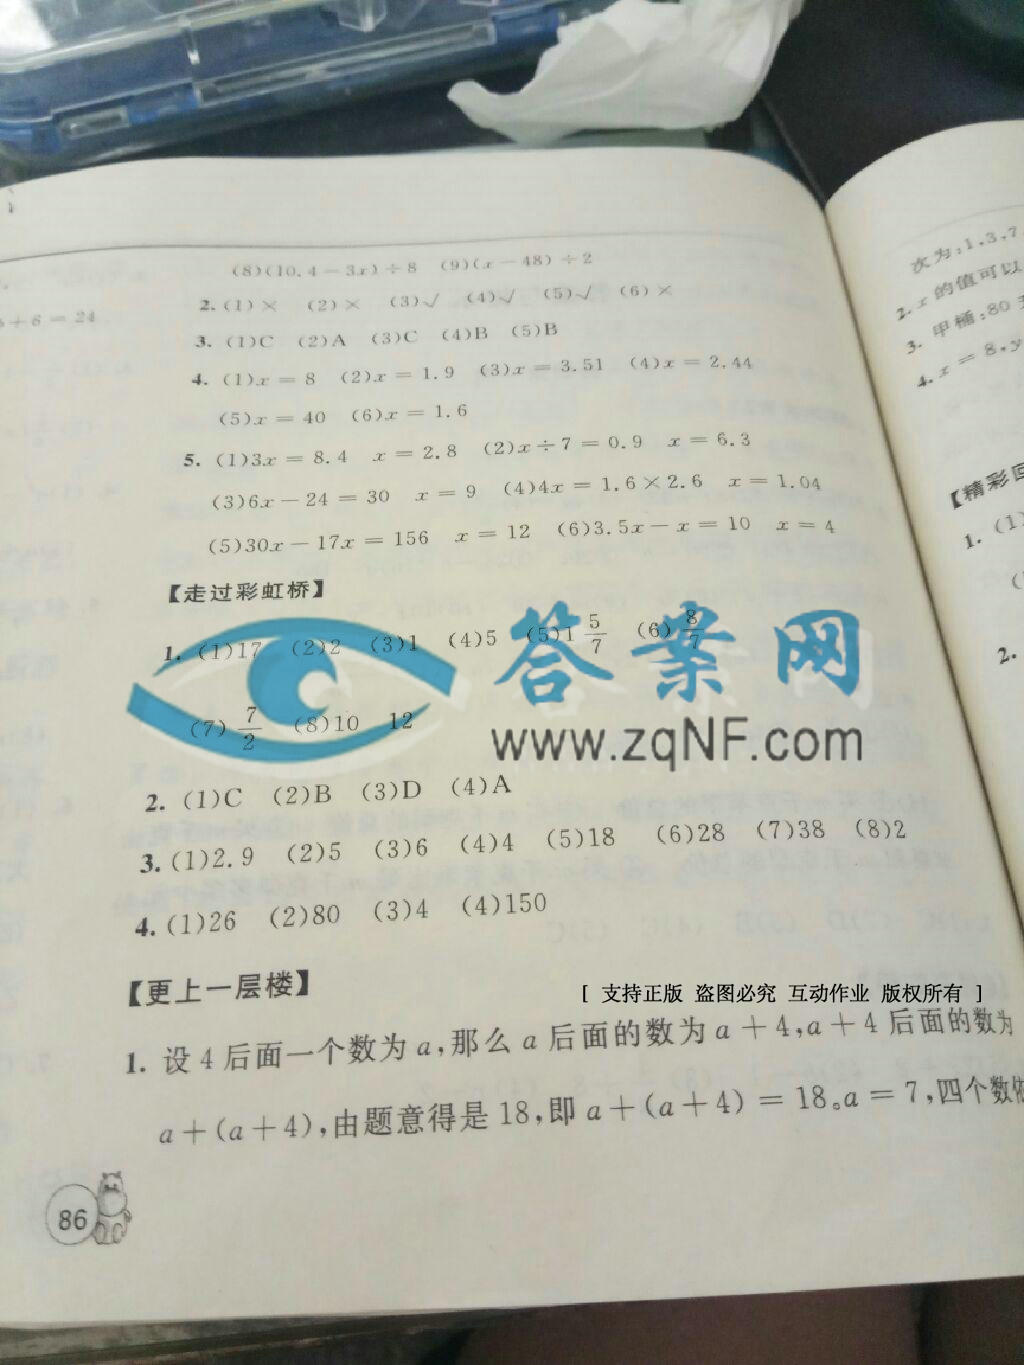 (8)(10.4－3x)÷8 (9)(x－48)÷2
2. (1)× (2)× (3)√ (4)√ (5)√ (6)×
3. (1)C (2)A (3)C (4)B (5)B
4. (1)x＝8 (2)x＝1.9 (3)x＝3.51 (4)x＝2.44
(5)x＝40 (6)x＝1.6
5. (1)3x＝8.4 x＝2.8 (2)x÷7＝0.9 x＝6.3
(3)6x－24＝30 x＝9 (4)4x＝1.6×2.6 x＝1.04
(5)30x－17x＝156 x＝12 (6)3.5x－x＝10 x＝4
【走过彩虹桥】
1. (1)17 (2)2 (3)1 (4)5 (5)1 5/7 (6) 8/7
(7) 7/2 (8)10 12
2. (1)C (2)B (3)D (4)A
3. (1)2.9 (2)5 (3)6 (4)4 (5)18 (6)28 (7)38 (8)2
4. (1)26 (2)80 (3)4 (4)150
【更上一层楼】
1. 设4后面一个数为a,那么a后面的数为a＋4,a＋4后面的数为
a＋(a＋4),由题意得是18,即a＋(a＋4)＝18。a＝7,四个数依
86
＋6＝24
次为:1,3,7,
2. x的值可以
3. 甲桶:80
4. x＝8,y
【精彩
1. (1)
2.
答案网
www.zqNF.com
[ 支持正版 盗图必究 互动作业 版权所有 ]